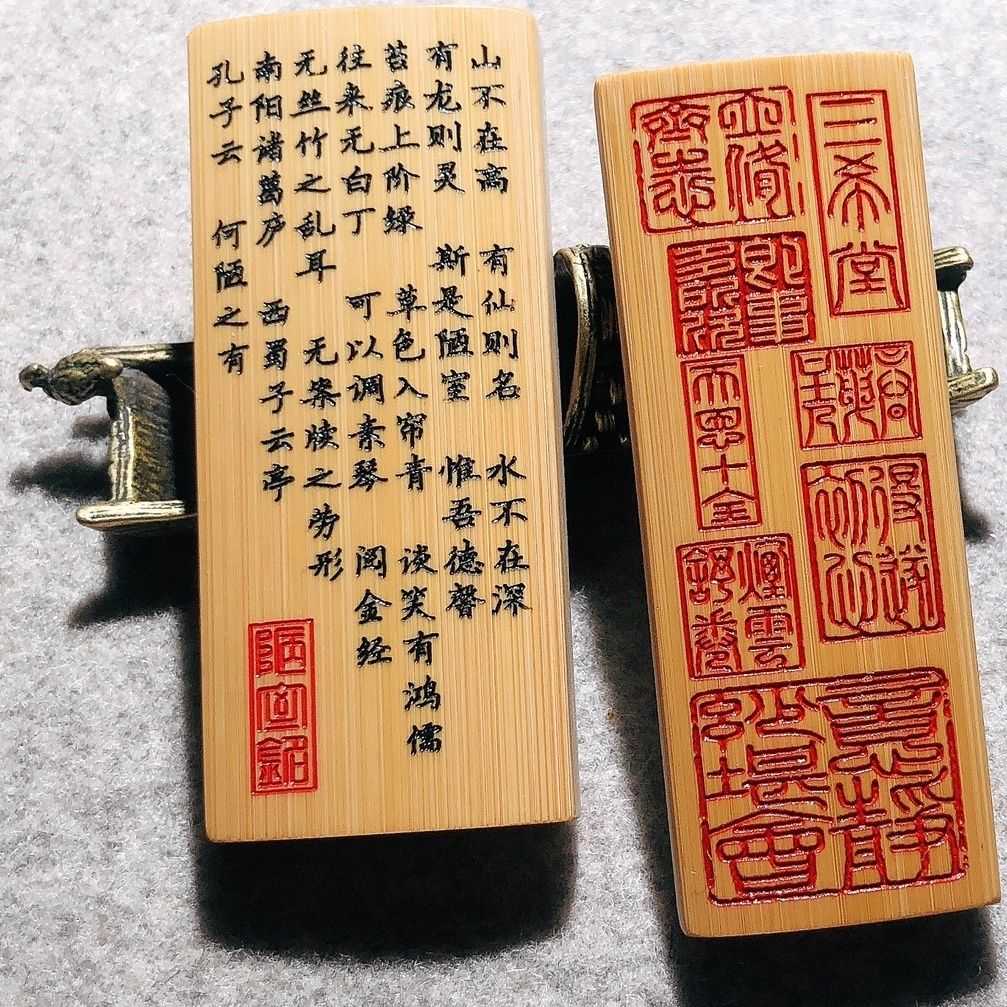 山不在高 有仙则名 水不在深
有龙则灵 斯是陋室 惟吾德馨
苔痕上阶绿 草色入帘青 谈笑有鸿儒
往来无白丁 可以调素琴 阅金经
无丝竹之乱耳 无案牍之劳形
南阳诸葛庐 西蜀子云亭
孔子云 何陋之有
陋室銘
三希堂
即事多所欣
煙雲舒卷
意静妙堪會